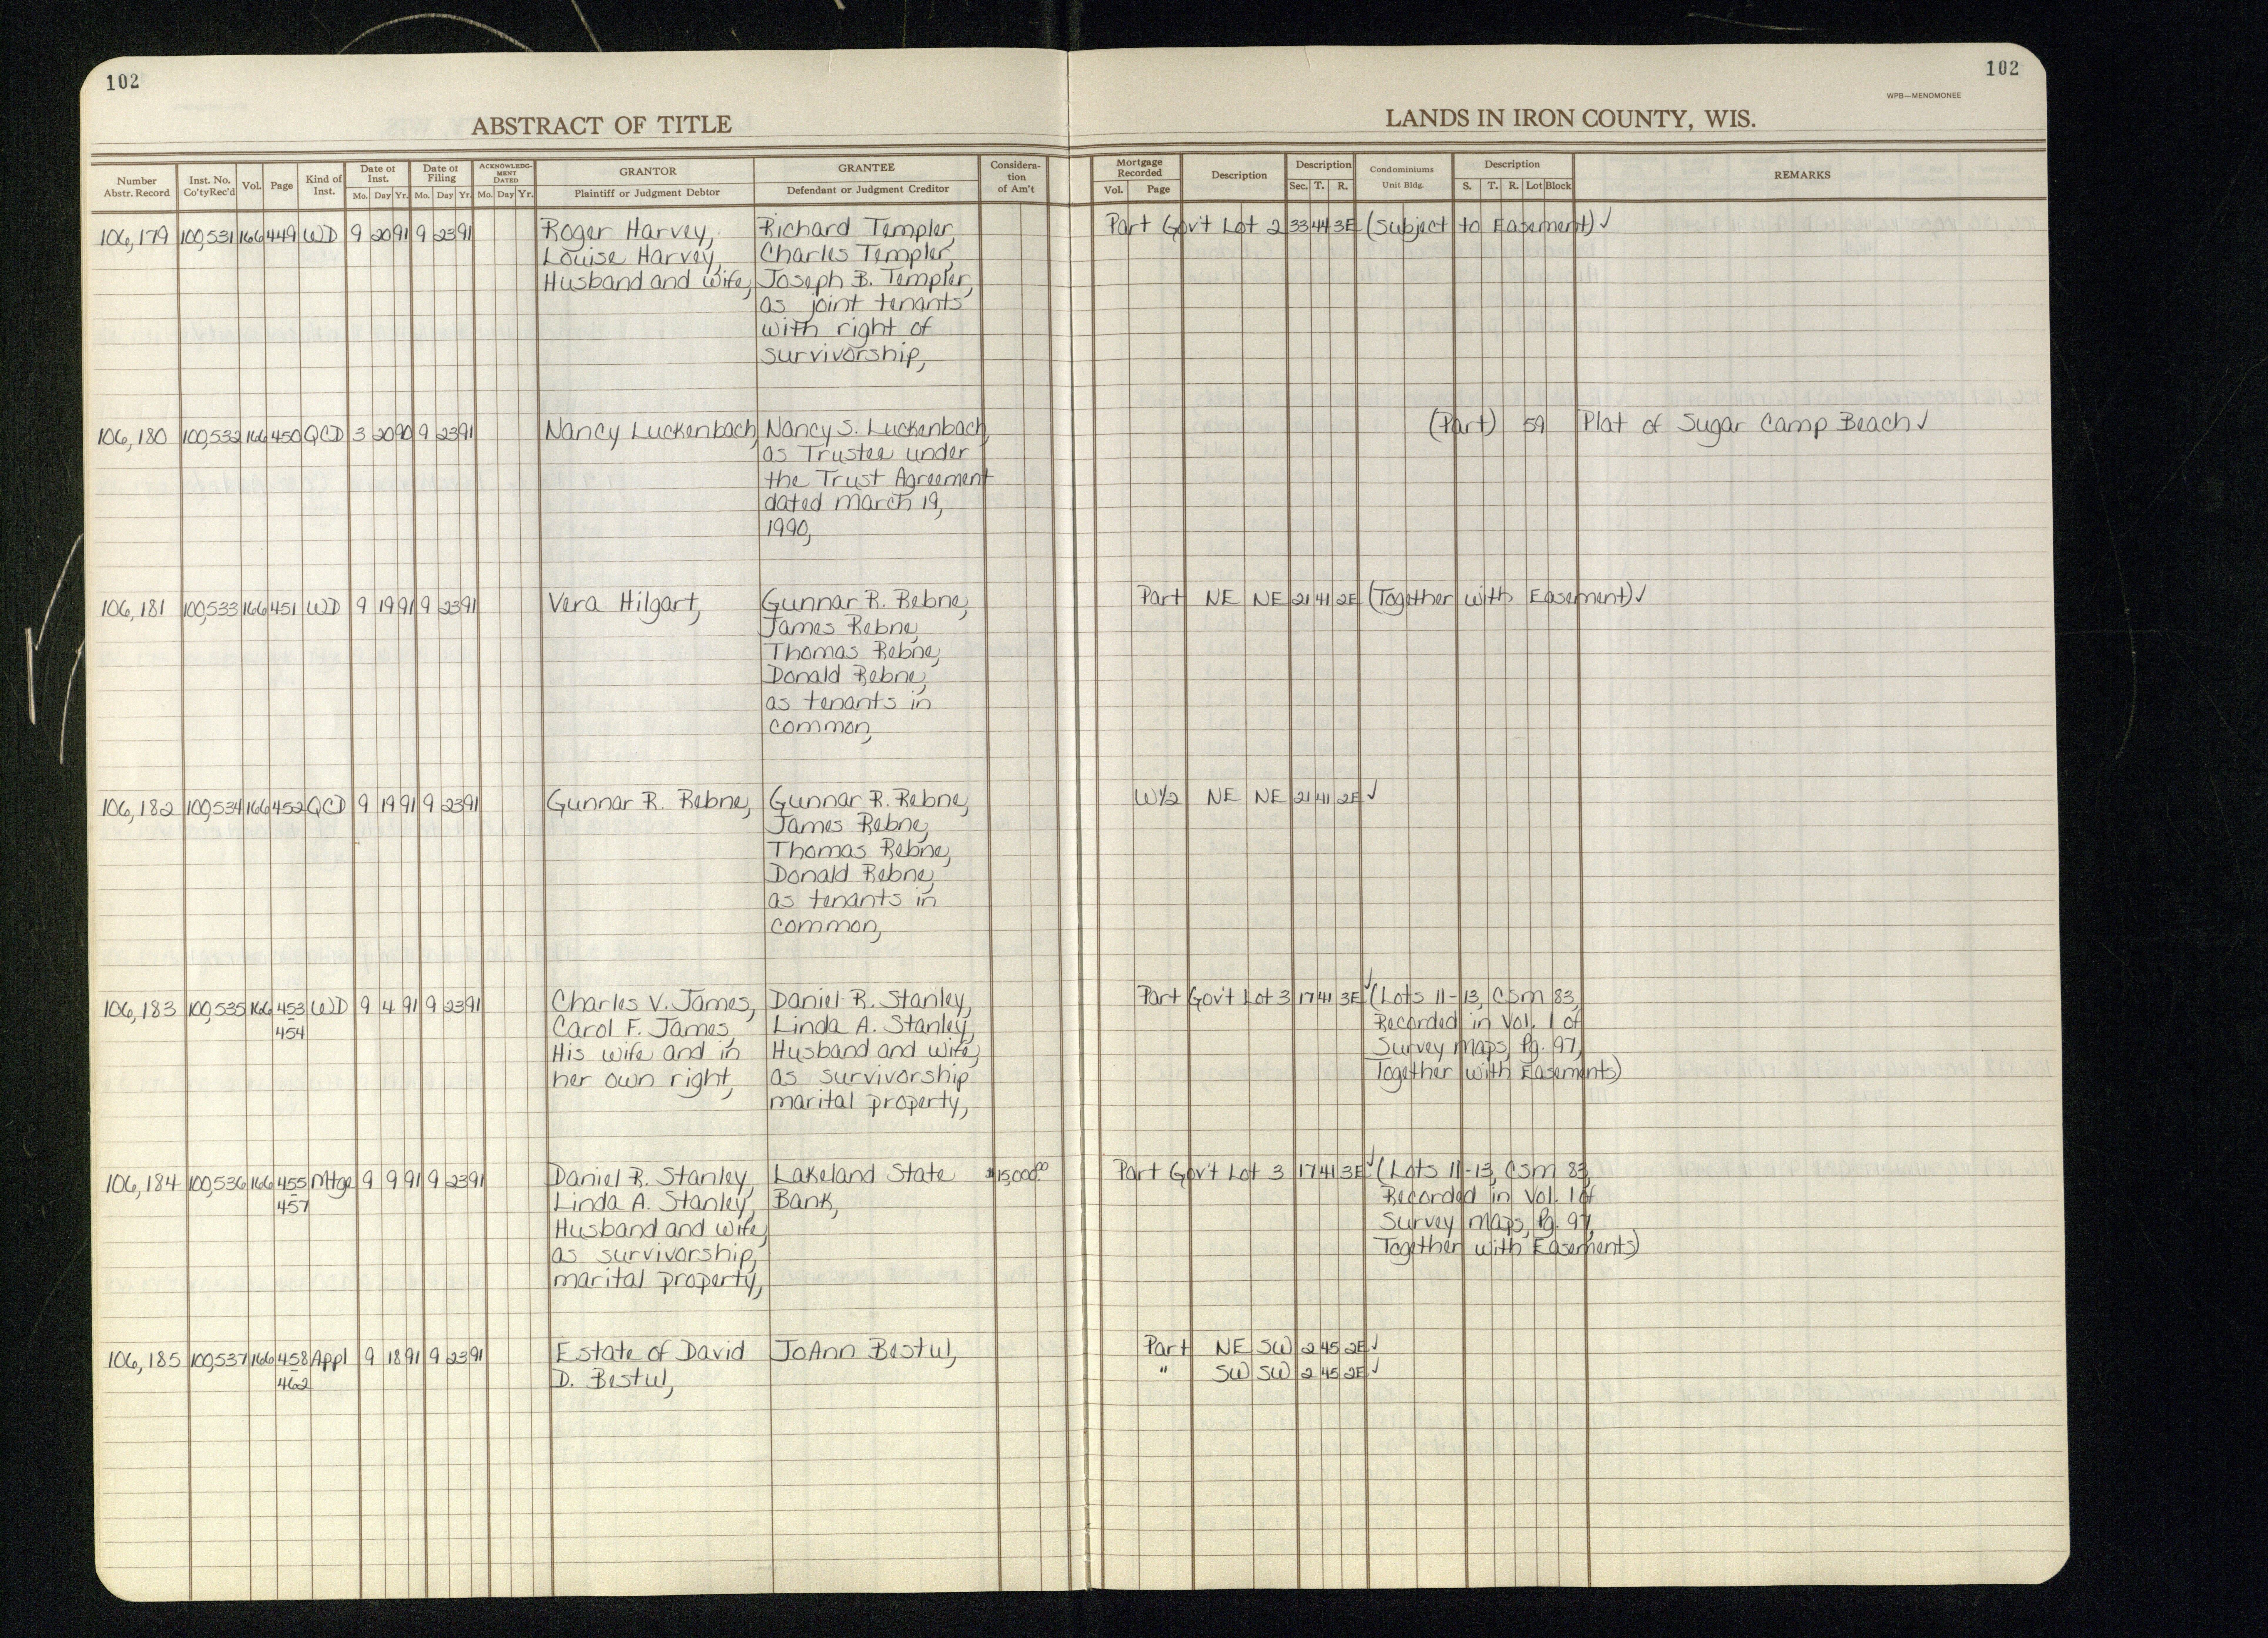 102
102
WPB—MENOMONEE
ABSTRACT OF TITLE
LANDS IN IRON COUNTY, WIS.
Number Abstr. Record Inst. No. Co'tyRec'd Vol. Page Kind of Inst. Date of Inst. Mo. Day Yr. Date of Filing Mo. Day Yr. ACKNOWLEDGMENT DATED Mo. Day Yr. GRANTOR Plaintiff or Judgment Debtor GRANTEE Defendant or Judgment Creditor Consideration of Am't Mortgage Recorded Vol. Page Description Description Sec. T. R. Condominiums Unit Bldg. Description S. T. R. Lot Block REMARKS
106,179 100,531 166 449 WD 9 20 91 9 23 91 Roger Harvey, Richard Templer, Part Gov't Lot 2 33 44 3E (Subject to Easement) ✓
Louise Harvey, Charles Templer,
Husband and Wife, Joseph B. Templer,
as joint tenants
with right of
survivorship,
106,180 100,532 166 450 QCD 3 20 90 9 23 91 Nancy Luckenbach, Nancy S. Luckenbach, (Part) 59 Plat of Sugar Camp Beach ✓
as Trustee under
the Trust Agreement
dated March 19,
1990,
106,181 100,533 166 451 WD 9 19 91 9 23 91 Vera Hilgart, Gunnar R. Rebne, Part NE NE 21 41 2E (Together with Easement) ✓
James Rebne,
Thomas Rebne,
Donald Rebne,
as tenants in
common,
106,182 100,534 166 452 QCD 9 19 91 9 23 91 Gunnar R. Rebne, Gunnar R. Rebne, W1/2 NE NE 21 41 2E ✓
James Rebne,
Thomas Rebne,
Donald Rebne,
as tenants in
common,
106,183 100,535 166 453 WD 9 4 91 9 23 91 Charles V. James, Daniel R. Stanley, Part Gov't Lot 3 17 41 3E ✓ (Lots 11-13, CSM 83,
454 Carol F. James, Linda A. Stanley, Recorded in Vol. 1 of
His wife and in Husband and wife, Survey Maps, Pg. 97,
her own right, as survivorship Together with Easements)
marital property,
106,184 100,536 166 455 Mtge 9 9 91 9 23 91 Daniel R. Stanley, Lakeland State $15,000.00 Part Gov't Lot 3 17 41 3E ✓ (Lots 11-13, CSM 83,
457 Linda A. Stanley, Bank, Recorded in Vol. 1 of
Husband and wife, Survey Maps, Pg. 97,
as survivorship, Together with Easements)
marital property,
106,185 100,537 166 458 Appl 9 18 91 9 23 91 Estate of David JoAnn Bestul, Part NE SW 2 45 2E ✓
462 D. Bestul, " SW SW 2 45 2E ✓